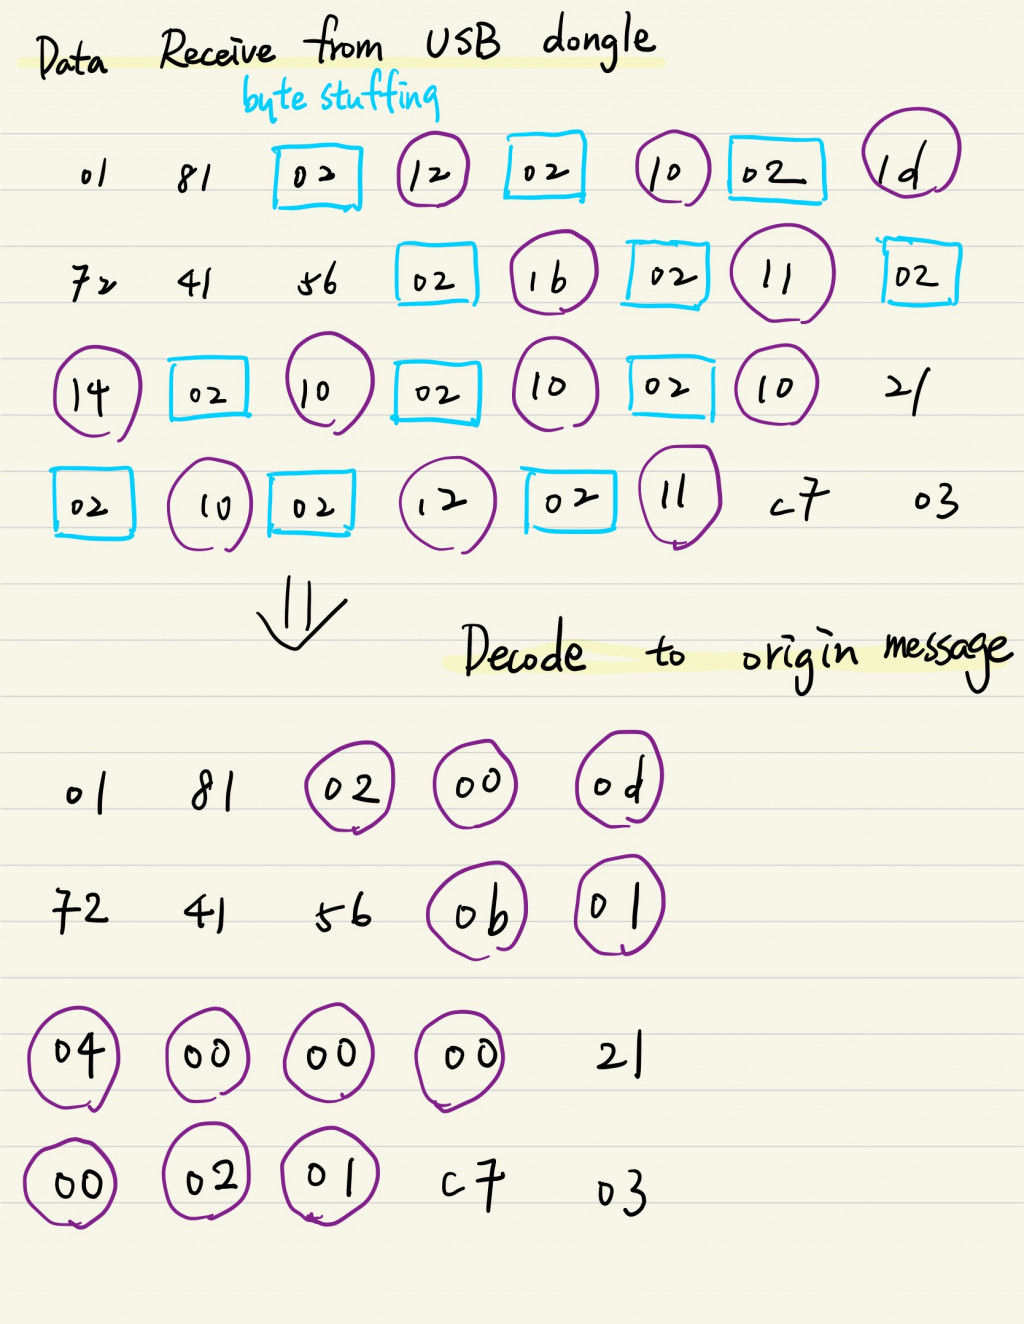 Data Receive from USB dongle
byte stuffing
01 81 02 12 02 10 02 1d
72 41 56 02 1b 02 11 02
14 02 10 02 10 02 10 21
02 10 02 12 02 11 c7 03
Decode to origin message
01 81 02 00 0d
72 41 56 0b 01
04 00 00 00 21
00 02 01 c7 03